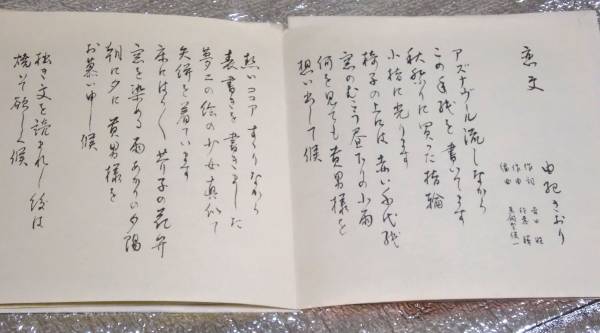 恋文
由紀さおり
作詞 吉田 旺
作曲 佐藤 勝
編曲
アズナヴール 流しながら
この手紙を書いてます
秋祭りに買った指輪
小指に光ります
椅子の上には 赤い千代紙
窓のむこう 昼下りの小雨
何を見ても貴男様を
想い出して候
熱いココア すすりながら
表書きを書きました
夢二の絵の少女真似て
矢絣を着ています
床にはらはら 芥子の花弁
窓を染める雨あがりの夕陽
朝に夕に 貴男様を
お慕い申し候
拙き文を読まれし後は
焼いて欲しく候